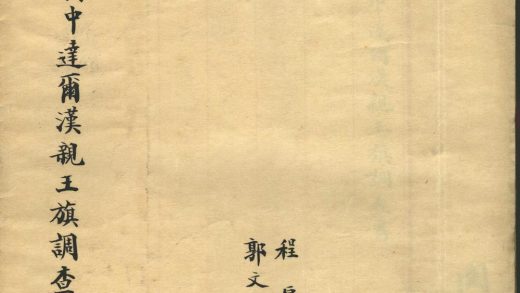 中達爾漢親王旗調查
程
郭文